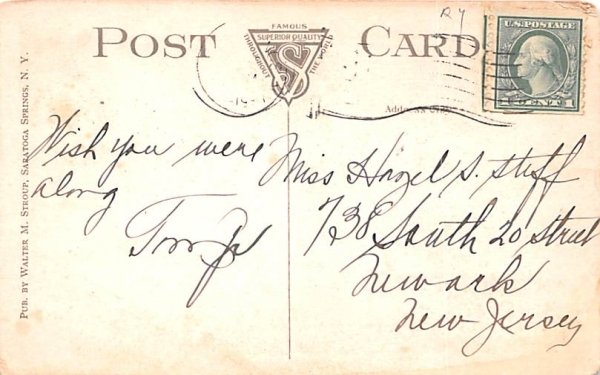 POST CARD
FAMOUS
SUPERIOR QUALITY
THROUGHOUT THE WORLD
S
R Y
U.S. POSTAGE
1 CENT 1
PUB. BY WALTER M. STROUP, SARATOGA SPRINGS, N. Y.
Wish you were
along
Miss Hazel S. Stuff
738 South 20 Street
Newark
New Jersey